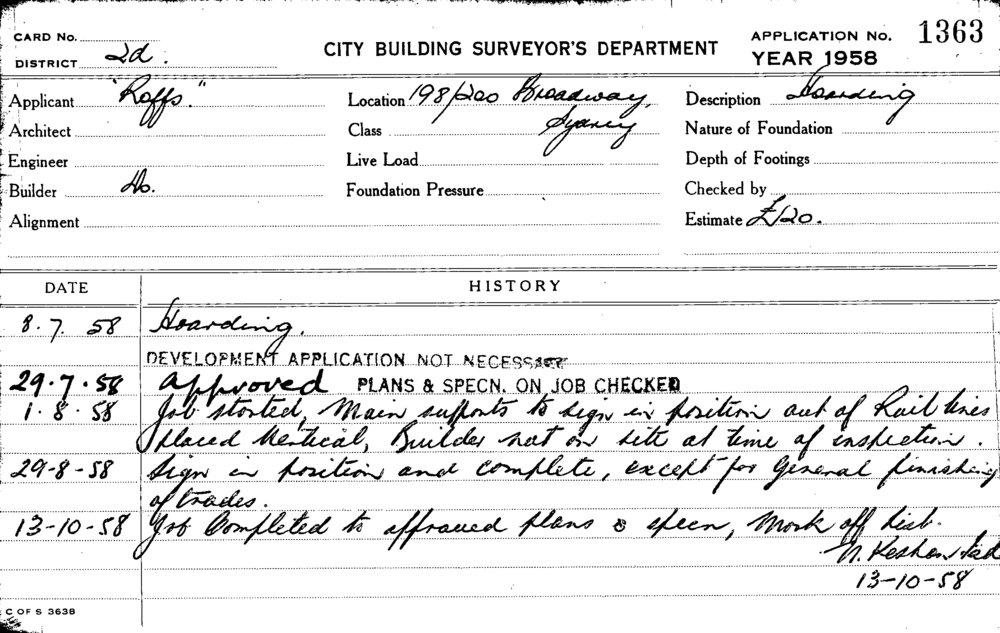 CARD No.
DISTRICT 2d.
CITY BUILDING SURVEYOR'S DEPARTMENT
APPLICATION No. 1363
YEAR 1958
Applicant "Roffs."
Location 198/200 Broadway, Sydney
Description Hoarding
Architect
Class
Nature of Foundation
Engineer
Live Load
Depth of Footings
Builder Do.
Foundation Pressure
Checked by
Alignment
Estimate £120.
DATE HISTORY
8.7.58 Hoarding.
DEVELOPMENT APPLICATION NOT NECESSARY
29.7.58 Approved PLANS & SPECN. ON JOB CHECKED
1.8.58 Job started, Main supports to sign in position out of Rail lines
placed Vertical, Builder not on site at time of inspection.
29-8-58 Sign in position and complete, except for General finishing
of trades.
13-10-58 Job Completed to approved plans & specn, Mark off List.
13-10-58
C OF S 3638